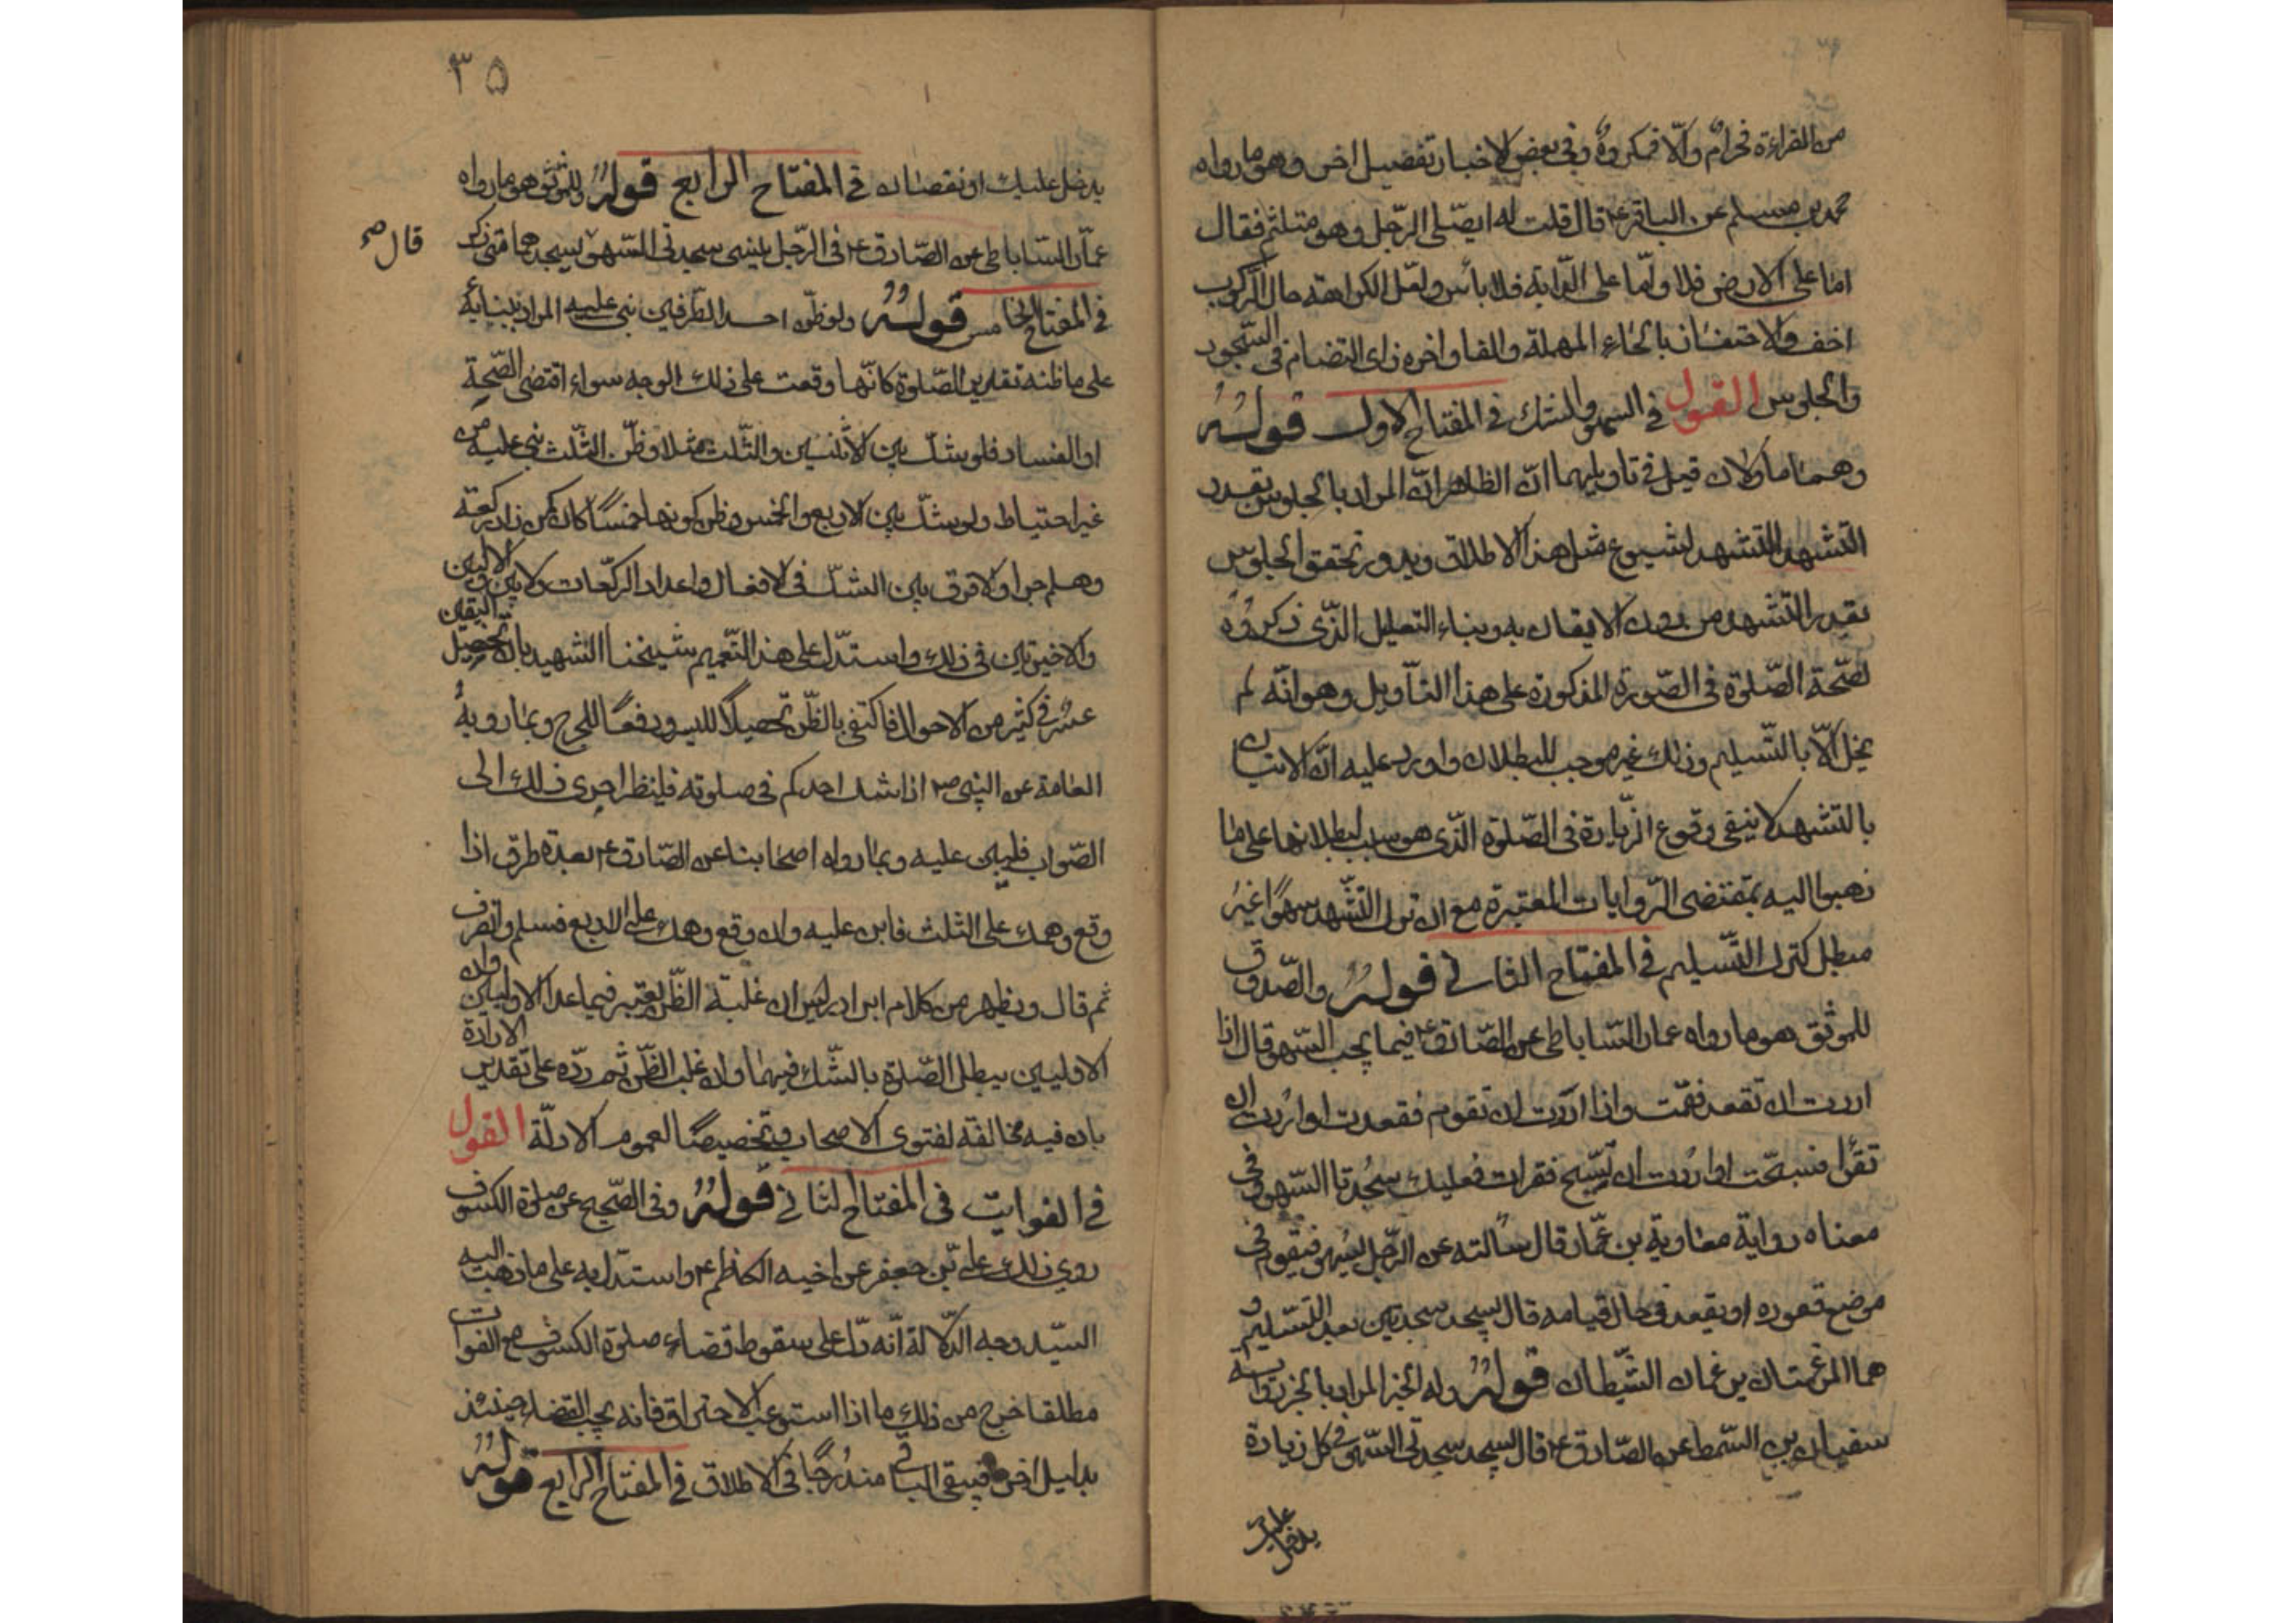 من القراءة فحرام والّا فمكروه وفي بعض الاخبار تفصيل اخر وهو ما رواه
محمد بن مسلم عن الباقر ع قال قلت له ايصلّى الرّجل وهو متلثم فقال
امّا على الارض فلا وامّا على الدّابة فلا بأس ولعل الكراهة حال الرّكوب
اخف والاحتفاز بالحاء المهملة والفا واخره زاى التضام في السّجود
والجلوس القول في السهو والشك في المفتاح الاول قوله
وهما ماولان قيل في تاويلهما انّ الظاهر انّ المراد بالجلوس بقدر
التشهد التشهد لشيوع مثل هذا الاطلاق وندور تحقق الجلوس
بقدر التّشهد من دون الايقان به وبناء التعليل الذّى ذكروه
لصّحة الصّلوة فى الصّورة المذكورة على هذا التأويل وهو انّه لم
يخل الّا بالتّسليم وذلك غير موجب للبطلان واورد عليه انّ الاتيان
بالتشهد لا ينفى وقوع الزّيادة فى الصّلوة الّذى هو سبب لبطلانها على ما
ذهبوا اليه بمقتضى الرّوايات المعتبرة مع ان ترك التّشهد سهوًا غير
مبطل كترك التّسليم في المفتاح الثاني قوله والصّدوق
للموثق هو ما رواه عمار السّاباطى عن الصّادق ع فيما يجب السّهو قال اذا
اردت ان تقعد فقمت واذا اردت ان تقوم فقعدت او اردت ان
تقرأ فسبحّت او اردت ان تسبّح فقرات فعليك سجدتا السّهو وفى
معناه رواية معاوية بن عمّار قال سالته عن الرّجل يسهو فيقوم فى
موضع قعوده او يقعد فى حال قيامه قال يسجد سجدتين بعد التسّليم و
هما المرغمتان يرغمان الشّيطان قوله وله الخبر المراد بالخبر رواية
سفيان بن السّمط عن الصّادق ع قال تسجد سجدتى السّهو فى كل زيادة
يدخل عليك
٣٥
يدخل عليك او نقصان في المفتاح الرابع قوله وللموثق هو ما رواه
عمّار السّاباطى عن الصّادق ع فى الرّجل ينسى سجدتى السّهو يسجدهما متى ذكر
قال صح
في المفتاح الخامس قوله ولو ظنّ احد الطّرفين بنى عليه المراد ببنائه
على ما ظنه تقدير الصّلوة كانّها وقعت على ذلك الوجه سواء اقتضى الصّحة
او الفساد فلو شكّ بين الاثنين والثّلث مثلا وظنّ الثّلث بنى عليه من
غير احتياط ولو شكّ بين الاربع والخمس وظن كونها خمسًا كان كمن زاد ركعة
وهلم جرا ولا فرق بين الشكّ فى الافعال واعداد الركّعات ولا بين الاوليين
والاخيرتين فى ذلك واستدّل على هذا التّعميم شيخنا الشهيد بان تحصيل اليقين
عسر فى كثير من الاحوال فاكتفى بالظّن تحصيلًا لليسر ودفعًا للحرج وبما رويه
العامة عن النبى ص اذا شك احدكم فى صلوته فلينظر احرى ذلك الى
الصّواب فليبن عليه وبما رواه اصحابنا عن الصّادق ع بعدة طرق اذا
وقع وهمك على الثلث فابن عليه وان وقع وهمك على الاربع فسلم وانصرف
ثم قال ويظهر من كلام ابن ادريس ان غلبة الظّن يعتبر فيما عدا الاوليين وان
الاوليين يبطل الصّلوة بالشّك فيهما وان غلب الظّن ثم ردّه على تقدير الارادة
بان فيه مخالفة لفتوى الاصحاب وتخصيصًا لعموم الادلّة القول
في الفوايت فى المفتاح الثاني قوله وفى الصّحيح عن صلوة الكسوف
روى ذلك علىّ بن جعفر عن اخيه الكاظم ع واستدّل به على ما ذهب اليه
السيّد وجه الدّلالة انّه دلّ على سقوط قضاء صلوة الكسوف مع الفوات
مطلقا خرج من ذلك ما اذا استوعب الاحتراق فانه يجب القضاء حينئذ
بدليل اخر فيبقى الباقى مندرجًا فى الاطلاق في المفتاح الرابع قوله